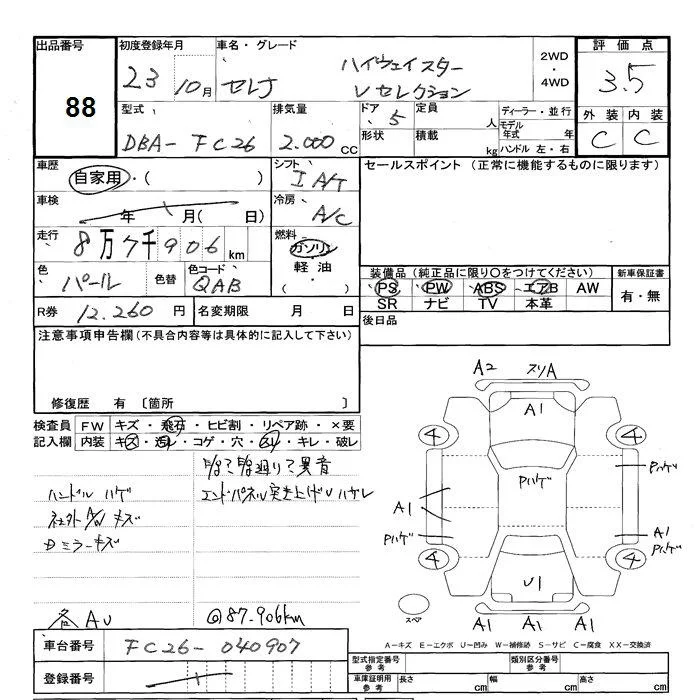 出品番号 88
初度登録年月 23 10月
車名・グレード セレナ ハイウェイスター Vセレクション
2WD・4WD
評価点 3.5
型式 DBA-FC26
排気量 2.000CC
ドア 5
形状
定員 人
積載 kg
ディーラー・並行
モデル年式 年
ハンドル 左・右
外装 内装
C C
車歴 自家用・( )
シフト I A/T
セールスポイント(正常に機能するものに限ります)
車検 年 月( 日)
冷房 A/C
走行 8万7千906km
燃料 ガソリン・軽油・( )
色 パール 色替
色コード QAB
装備品(純正品に限り○をつけてください)
新車保証書
PS PW ABS エアB AW
有・無
SR ナビ TV 本革
R券 12.260円
名変期限 月 日
後日品
注意事項申告欄(不具合内容等は具体的に記入して下さい)
修復歴 有 〔箇所 〕
検査員記入欄
FW キズ・飛石・ヒビ割・リペア跡・×要
内装 キズ・汚レ・コゲ・穴・スレ・キレ・破レ
異音
ハンドル ハゲ
エンドパネル突き上げU ハガレ
社外A/W キズ
Dミラーキズ
各AU
@87.906km
A2 スリA
A1
4 4
Pハゲ Pハゲ
A1
Pハゲ
A1 Pハゲ
4 4
U1
スペア
A1 A1 A1
A−キズ E−エクボ U−凹み W−補修跡 S−サビ C−腐食 XX−交換済
車台番号 FC26-040907
登録番号
型式指定番号 参考
類別区分番号 参考
車庫証明用 参考
長さ cm
幅 cm
高さ cm